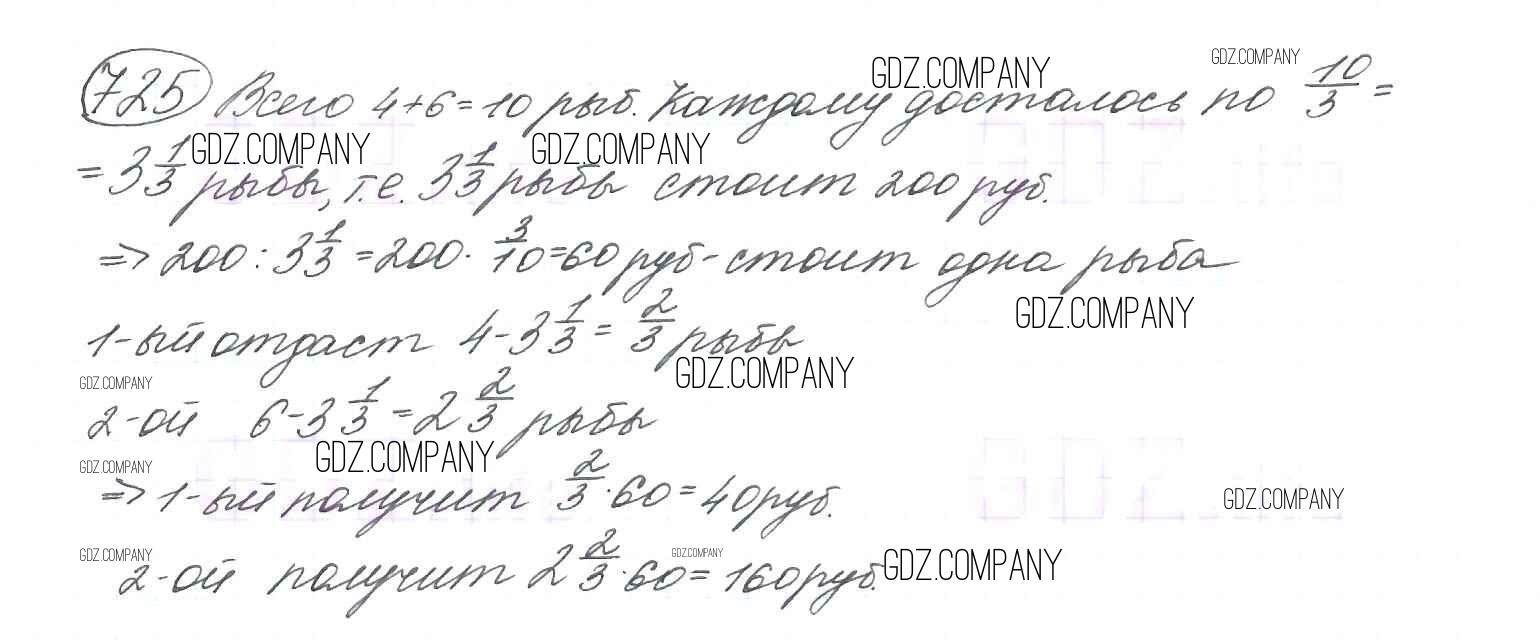 725 Всего 4+6=10 рыб. Каждому досталось по 10/3 =
GDZ.COMPANY
GDZ.COMPANY
= 3 1/3 рыбы, т.е. 3 1/3 рыбы стоит 200 руб.
GDZ.COMPANY
GDZ.COMPANY
=> 200 : 3 1/3 = 200 · 3/10 = 60 руб - стоит одна рыба
GDZ.COMPANY
1-ый отдаст 4 - 3 1/3 = 2/3 рыбы
GDZ.COMPANY
GDZ.COMPANY
2-ой 6 - 3 1/3 = 2 2/3 рыбы
GDZ.COMPANY
GDZ.COMPANY
=> 1-ый получит 2/3 · 60 = 40 руб.
GDZ.COMPANY
GDZ.COMPANY
GDZ.COMPANY
2-ой получит 2 2/3 · 60 = 160 руб.
GDZ.COMPANY